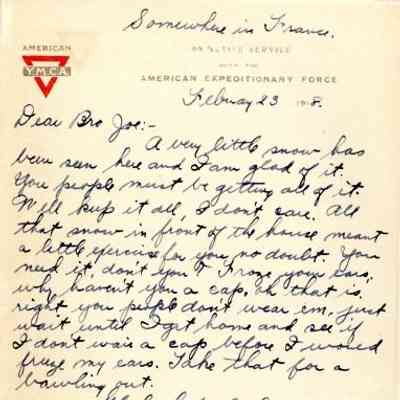 Somewhere in France.
AMERICAN
Y.M.C.A.
ON ACTIVE SERVICE
WITH THE
AMERICAN EXPEDITIONARY FORCE
Febuary 23 1918.
Dear Bro Joe:-
A very little snow has
been seen here and I am glad of it.
You people must be getting all of it.
Well keep it all, I don't care. All
that snow in front of the house meant
a little exercise for you, no doubt. You
need it, don't you? Froze your ears;
why haven't you a cap. Oh that is
right you people don't wear em, just
wait until I get home and see if
I don't wair a cap before I would
freeze my ears. Take that for a
bawling out.